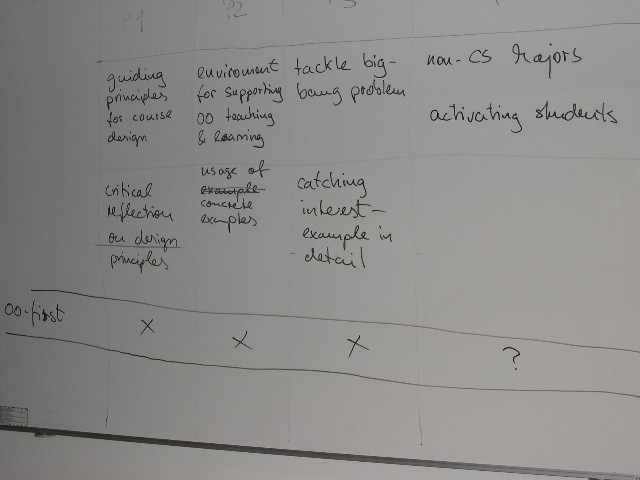 P1
P2
P3
guiding
principles
for course
design
enviroment
for supporting
OO teaching
& learning
tackle big-
bang problem
non-CS Majors
activating students
critical
reflection
on design
principles
usage of
example
concrete
examples
catching
interest-
example in
detail
OO-first
X
X
X
?